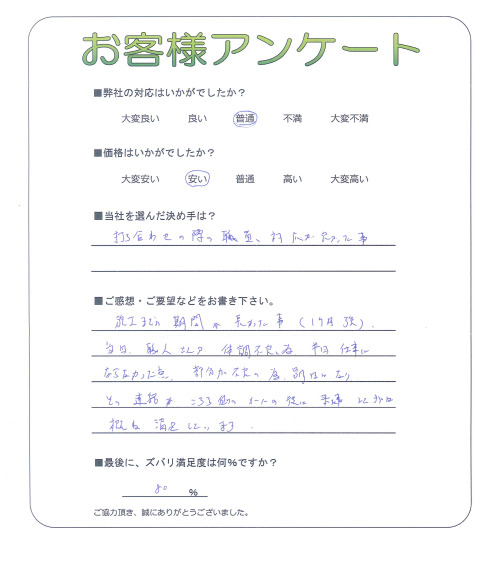 お客様アンケート
■弊社の対応はいかがでしたか？
大変良い 良い 普通 不満 大変不満
■価格はいかがでしたか？
大変安い 安い 普通 高い 大変高い
■当社を選んだ決め手は？
打ち合わせの際の職員、対応が良かった事
■ご感想・ご要望などをお書き下さい。
施工までの期間が長かった事（1ヶ月強）.
当日、職人さんの体調不良の為 半日仕事に
ならなかった
その連絡が
概ね満足しています.
■最後に、ズバリ満足度は何%ですか？
80 %
ご協力頂き、誠にありがとうございました。